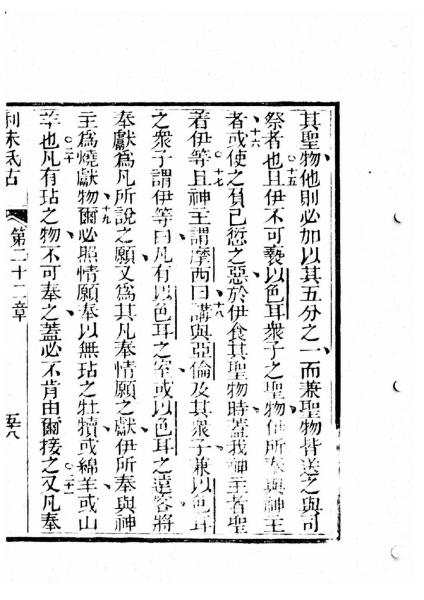 其聖物他則必加以其五分之一而兼聖物皆送之與司
祭者也○十五且伊不可褻以色耳衆子之聖物伊所奉與神主
者○十六或使之負己愆之惡於伊食其聖物時蓋我神主者聖
若伊等○十七且神主謂摩西曰○十八講與亞倫及其衆子兼以色耳
之衆子謂伊等曰凡有以色耳之室或以色耳之遠客將
奉獻為凡所說之願又為其凡奉情願之獻伊所奉與神
主為燒獻物○十九爾必照情願奉以無玷之牡犢或綿羊或山
羊也○二十凡有玷之物不可奉之蓋必不肯由爾接之○二十一又凡奉
利未氏古 第二十二章 五八